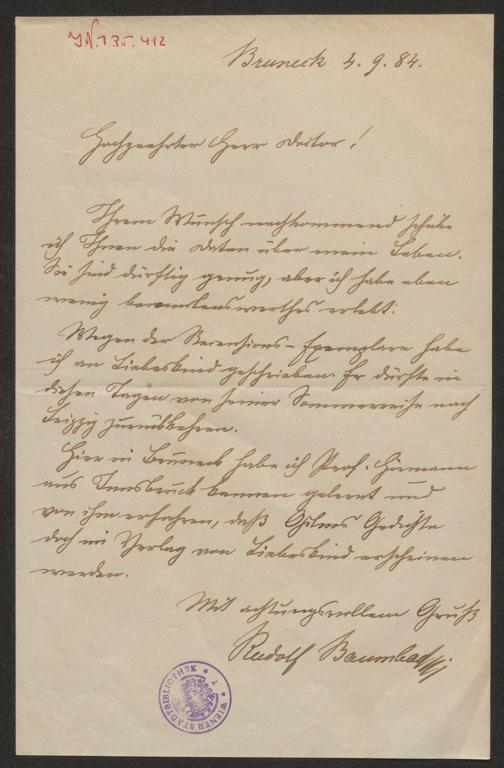 J.N. 135.412
Bruneck 4. 9. 84.
Hochgeehrter Herr Doctor!
Ihrem Wunsch nachkommend schicke
ich Ihnen die Daten über mein Leben.
Sie sind dürftig genug, aber ich habe eben
wenig bemerkenswerthes erlebt.
Wegen der Recensions-Exemplare habe
ich an Liebeskind geschrieben. Er dürfte in
diesen Tagen von seiner Sommerreise nach
Leipzig zurückkehren.
Hier in Bruneck habe ich Prof. Hörmann
aus Innsbruck kennen gelernt und
von ihm erfahren, daß Gilms Gedichte
doch im Verlag von Liebeskind erscheinen
werden.
Mit achtungsvollem Gruß
Rudolf Baumbach
WIENER STADTBIBLIOTHEK